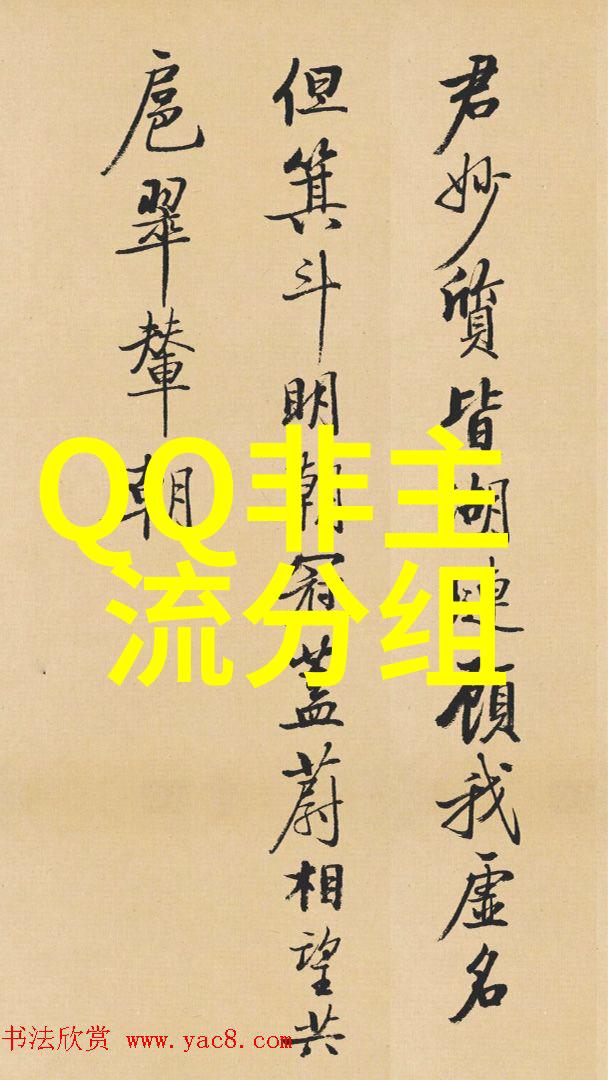 君妙質皆瑚璉顧我虛名
但箕斗明朝冠蓋蔚相望共
扈翠輦朝
QQ非主
流分组
书法欣赏 www.yac8.com